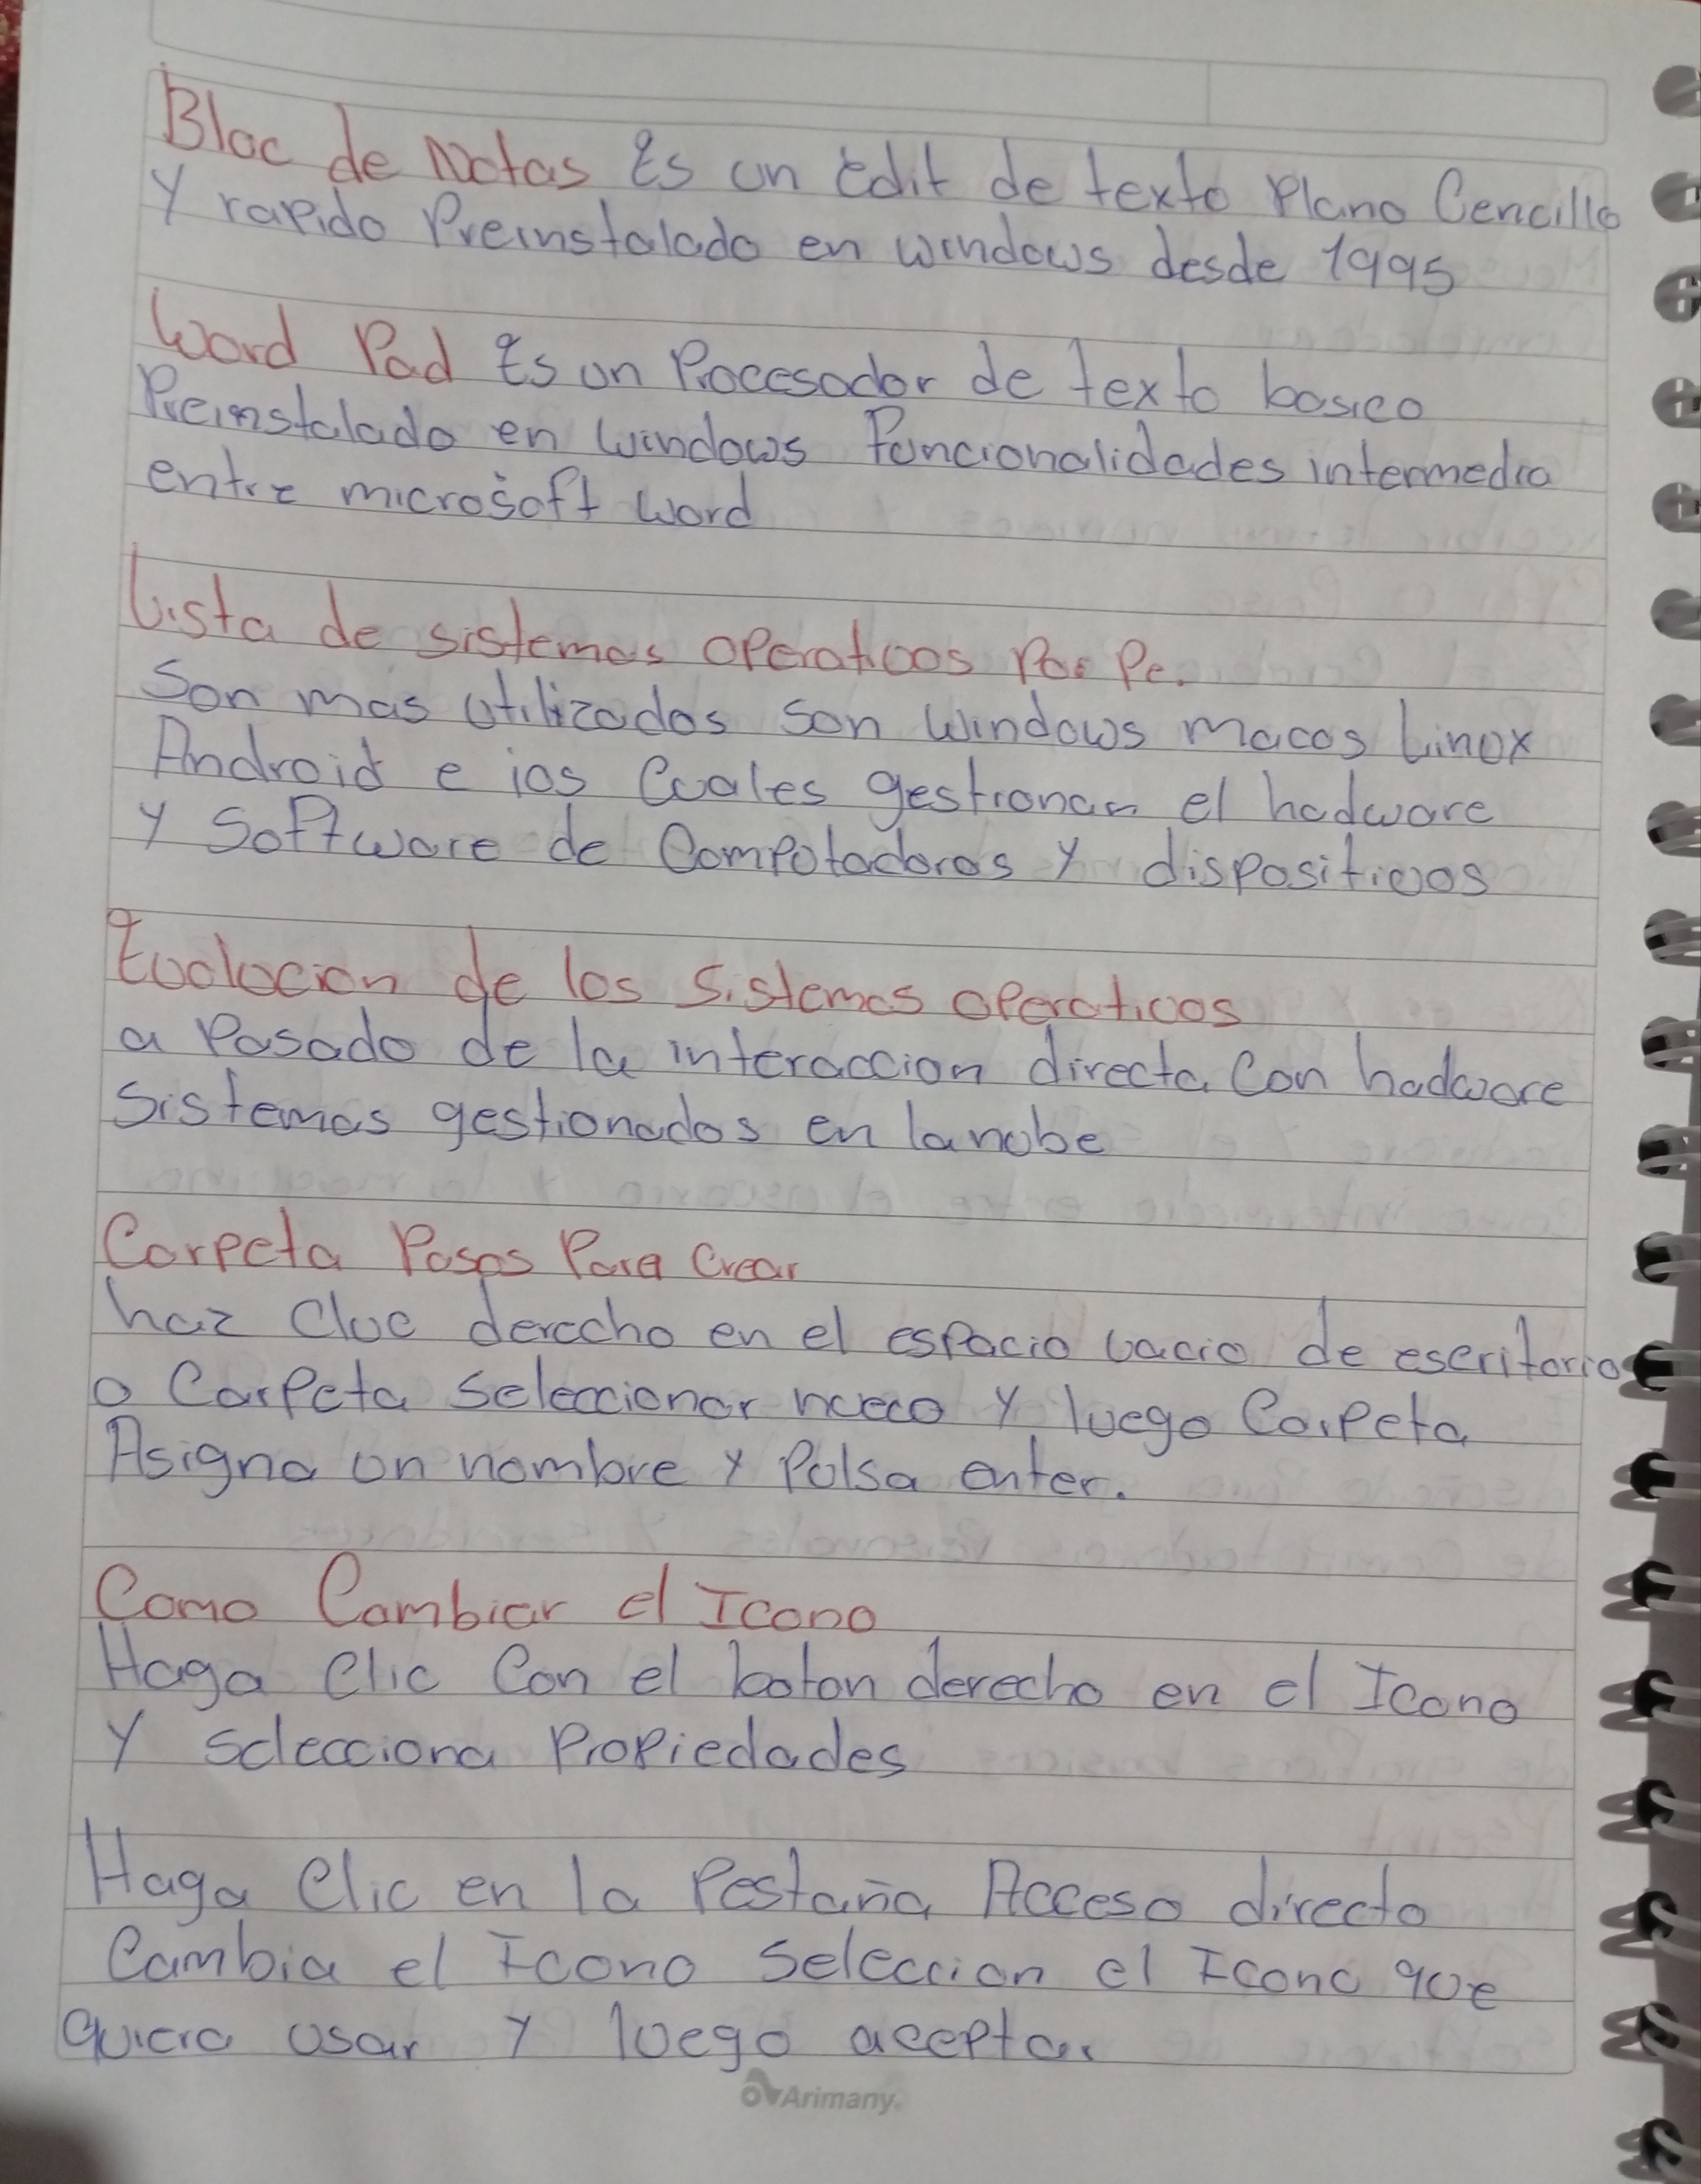 Bloc de Notas Es un Edit de texto Plano Cencillo
Y rapido Preinstalado en windows desde 1995
Word Pad Es un Procesador de texto basico
Preinstalado en Windows Funcionalidades intermedia
entre microsoft Word
Lista de sistemas operativos Por Pc.
Son mas utilizados son Windows macos Linux
Android e ios Cuales gestionan el hadware
y Software de Computadoras y dispositivos
Evolucion de los Sistemas operativos
a Pasado de la interaccion directa Con hadware
Sistemas gestionados en la nube
Carpeta Pasos Para Crear
haz Clic derecho en el espacio vacio de escritorio
o Carpeta Seleccionar nuevo y luego Carpeta
Asigna un nombre y Pulsa enter.
Como Cambiar el Icono
Haga Clic Con el boton derecho en el Icono
Y selecciona Propiedades
Haga Clic en la Pestaña Acceso directo
Cambia el Icono Seleccion el Icono que
quiera usar y luego aceptar
Arimany